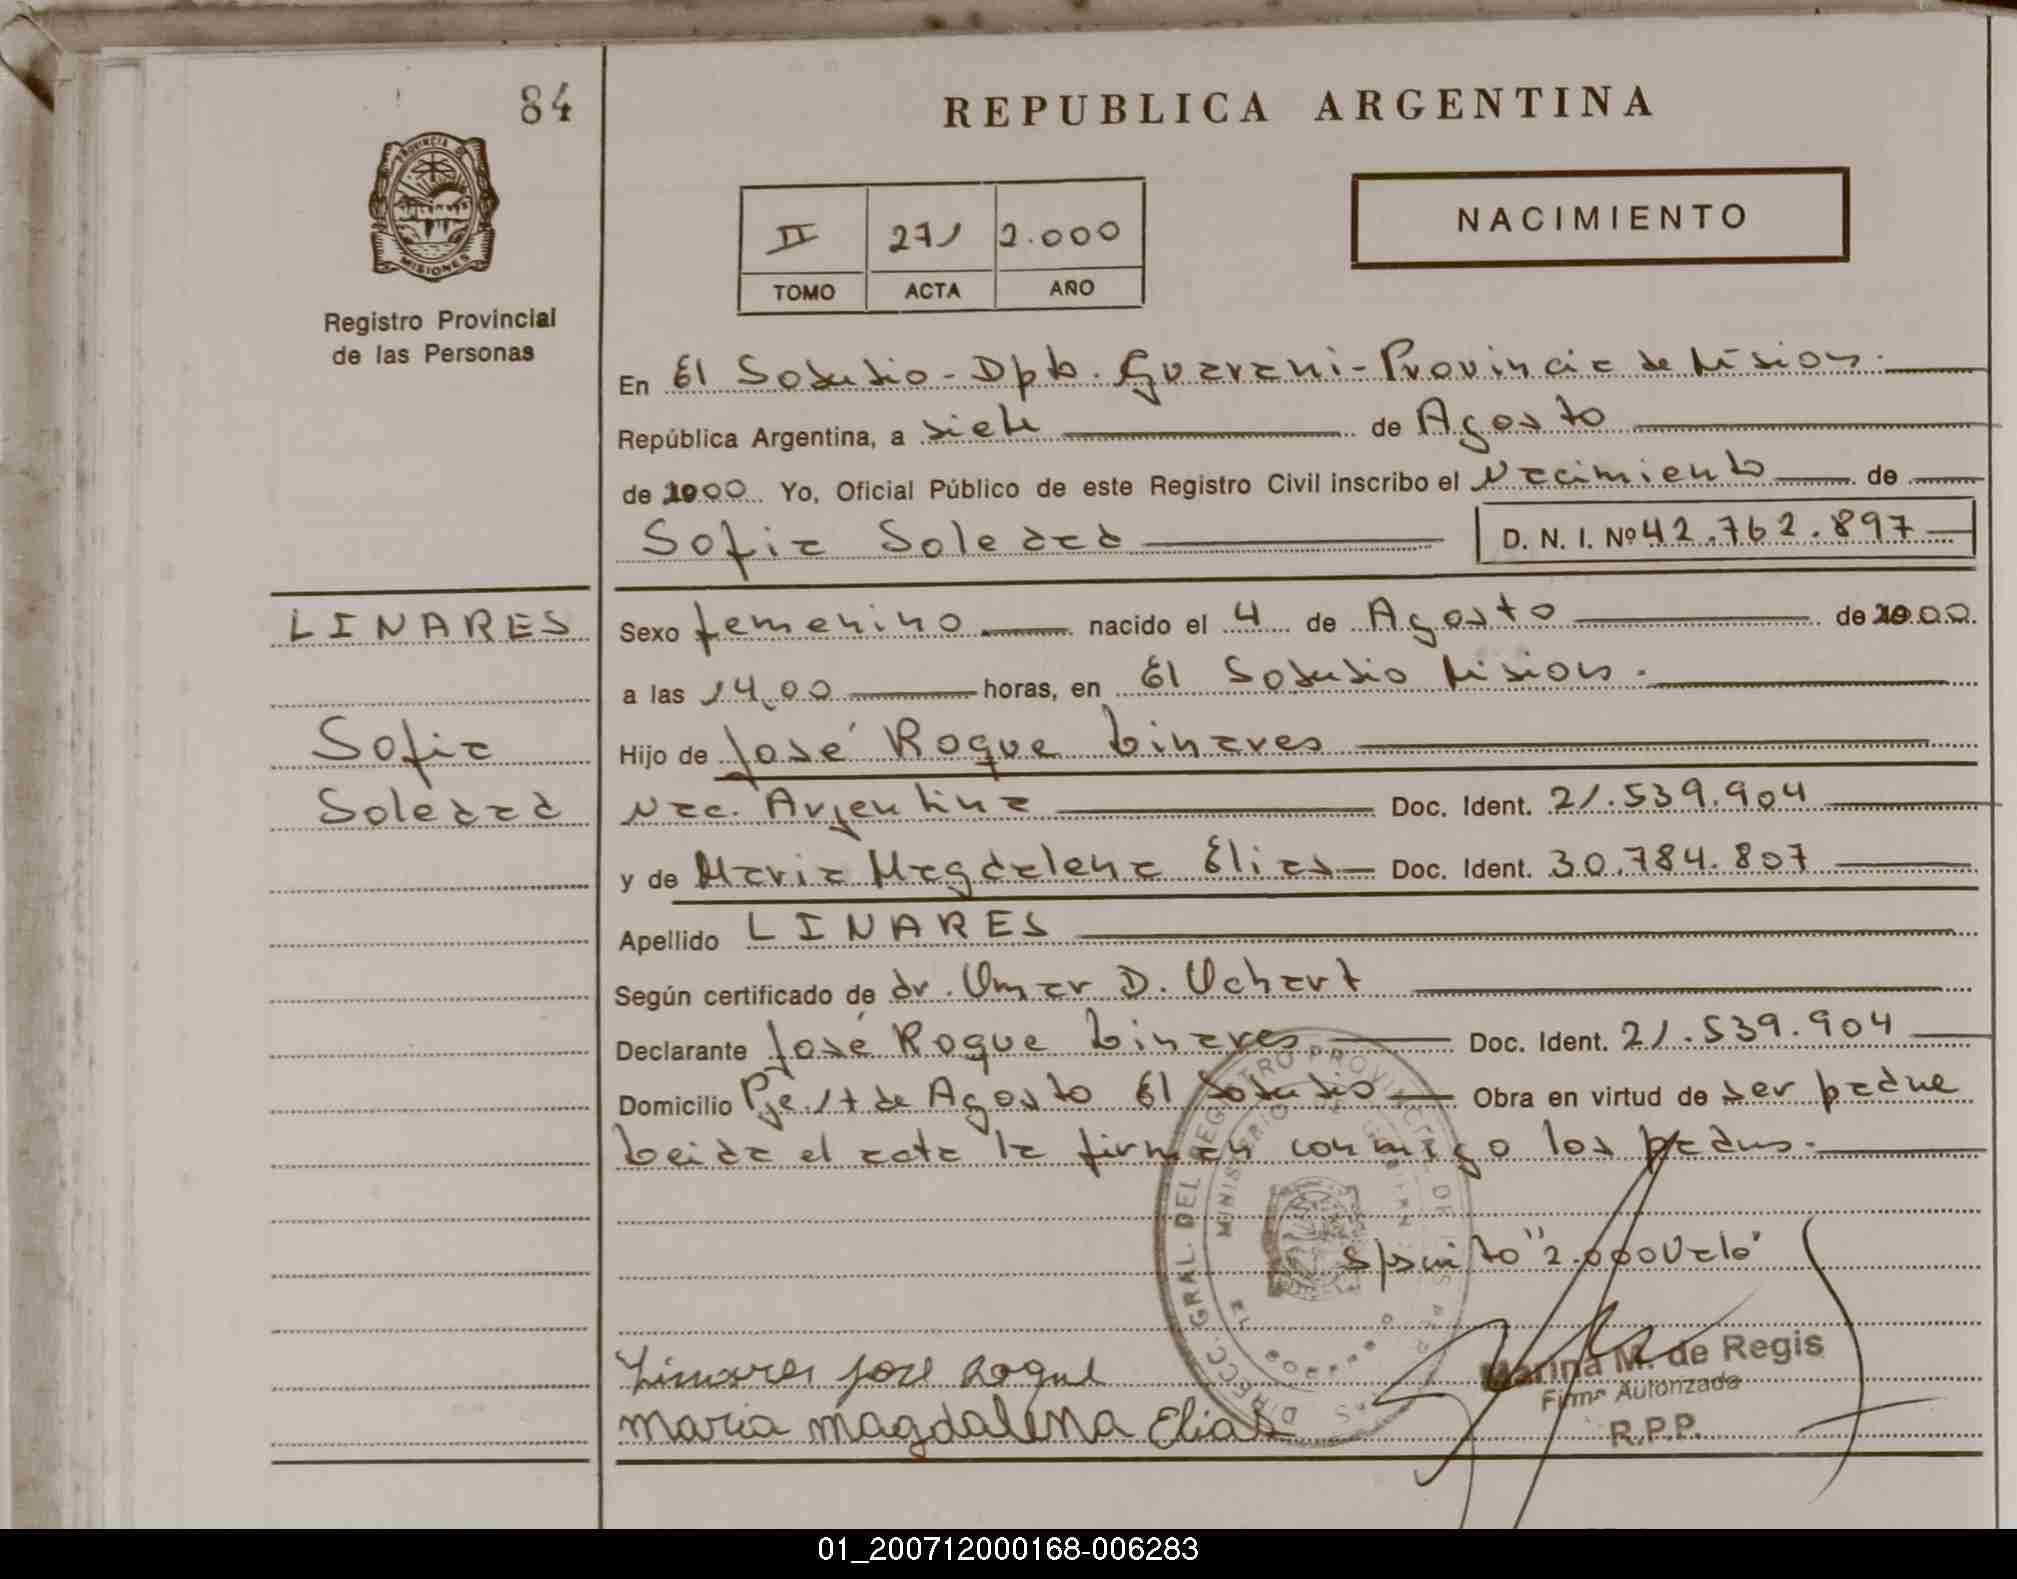 84
REPUBLICA ARGENTINA
PROVINCIA DE
MISIONES
Registro Provincial
de las Personas
II 271 2.000
TOMO ACTA AÑO
NACIMIENTO
En El Soberbio - Dpto. Guarani - Provincia de Misiones.
República Argentina, a siete de Agosto
de 2000 Yo, Oficial Público de este Registro Civil inscribo el Nacimiento de
Sofia Soledad D. N. I. Nº 42.762.897
LINARES
Sofia
Soledad
Sexo femenino nacido el 4 de Agosto de 2000
a las 14,00 horas, en El Soberbio Misiones.
Hijo de José Roque Linares
Nac. Argentina Doc. Ident. 21.539.904
y de Maria Magdalena Elias Doc. Ident. 30.784.807
Apellido LINARES
Según certificado de dr. Omar D. Uchart
Declarante José Roque Linares Doc. Ident. 21.539.904
Domicilio Pje. 17 de Agosto El Soberbio Obra en virtud de ser padre
Leida el acta la firman conmigo los padres.
S/scrito "2.000 Vale"
Linares jose Roque
maria magdalena Elias
Marina M. de Regis
Firma Autorizada
R.P.P.
DIRECC. GRAL. DEL REGISTRO PROVINCIAL DE LAS PERSONAS
MINISTERIO DE
01_200712000168-006283